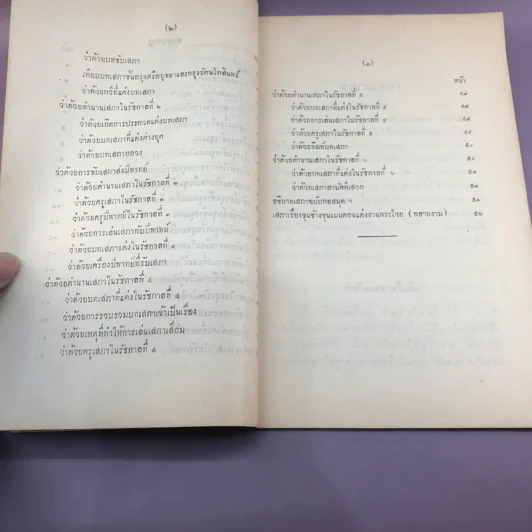 (๒)
ว่าด้วยบทขับเสภา
เทียบบทเสภาชั้นกรุงศรีอยุธยาและกรุงรัตนโกสินทร์
ว่าด้วยกวีที่แต่งบทเสภา
ว่าด้วยตำนานเสภาในรัชกาลที่ ๒
ว่าด้วยเกิดการประกวดแต่งบทเสภา
ว่าด้วยบทเสภาที่แต่งต่างยุค
ว่าด้วยบทเสภาหลวง
ว่าด้วยการขับเสภาส่งปี่พาทย์
ว่าด้วยตำนานเสภาในรัชกาลที่ ๓
ว่าด้วยครูเสภาในรัชกาลที่ ๓
ว่าด้วยครูปี่พาทย์ในรัชกาลที่ ๓
ว่าด้วยการเล่นเสภากับปี่พาทย์
ว่าด้วยบทเสภาแต่งในรัชกาลที่ ๓
ว่าด้วยเครื่องปี่พาทย์ที่รับเสภา
ว่าด้วยตำนานเสภาในรัชกาลที่ ๔
ว่าด้วยบทเสภาที่แต่งในรัชกาลที่ ๔
ว่าด้วยการรวบรวมบทเสภาเข้าเป็นเรื่อง
ว่าด้วยเหตุที่ทำให้การเล่นเสภาเสื่อม
ว่าด้วยครูเสภาในรัชกาลที่ ๔
(๓)
หน้า
ว่าด้วยตำนานเสภาในรัชกาลที่ ๕
ว่าด้วยบทเสภาที่แต่งในรัชกาลที่ ๕
ว่าด้วยการเล่นเสภาในรัชกาลที่ ๕
ว่าด้วยครูเสภาในรัชกาลที่ ๕
ว่าด้วยพิมพ์บทเสภา
ว่าด้วยตำนานเสภาในรัชกาลที่ ๖
ว่าด้วยบทเสภาที่แต่งในรัชกาลที่ ๖
ว่าด้วยเสภาสามัคคีเสวก
อธิบายเสภาฉบับหอสมุด ฯ
เสภาเรื่องขุนช้างขุนแผนตอนแต่งงานพระไวย ( พลายงาม )